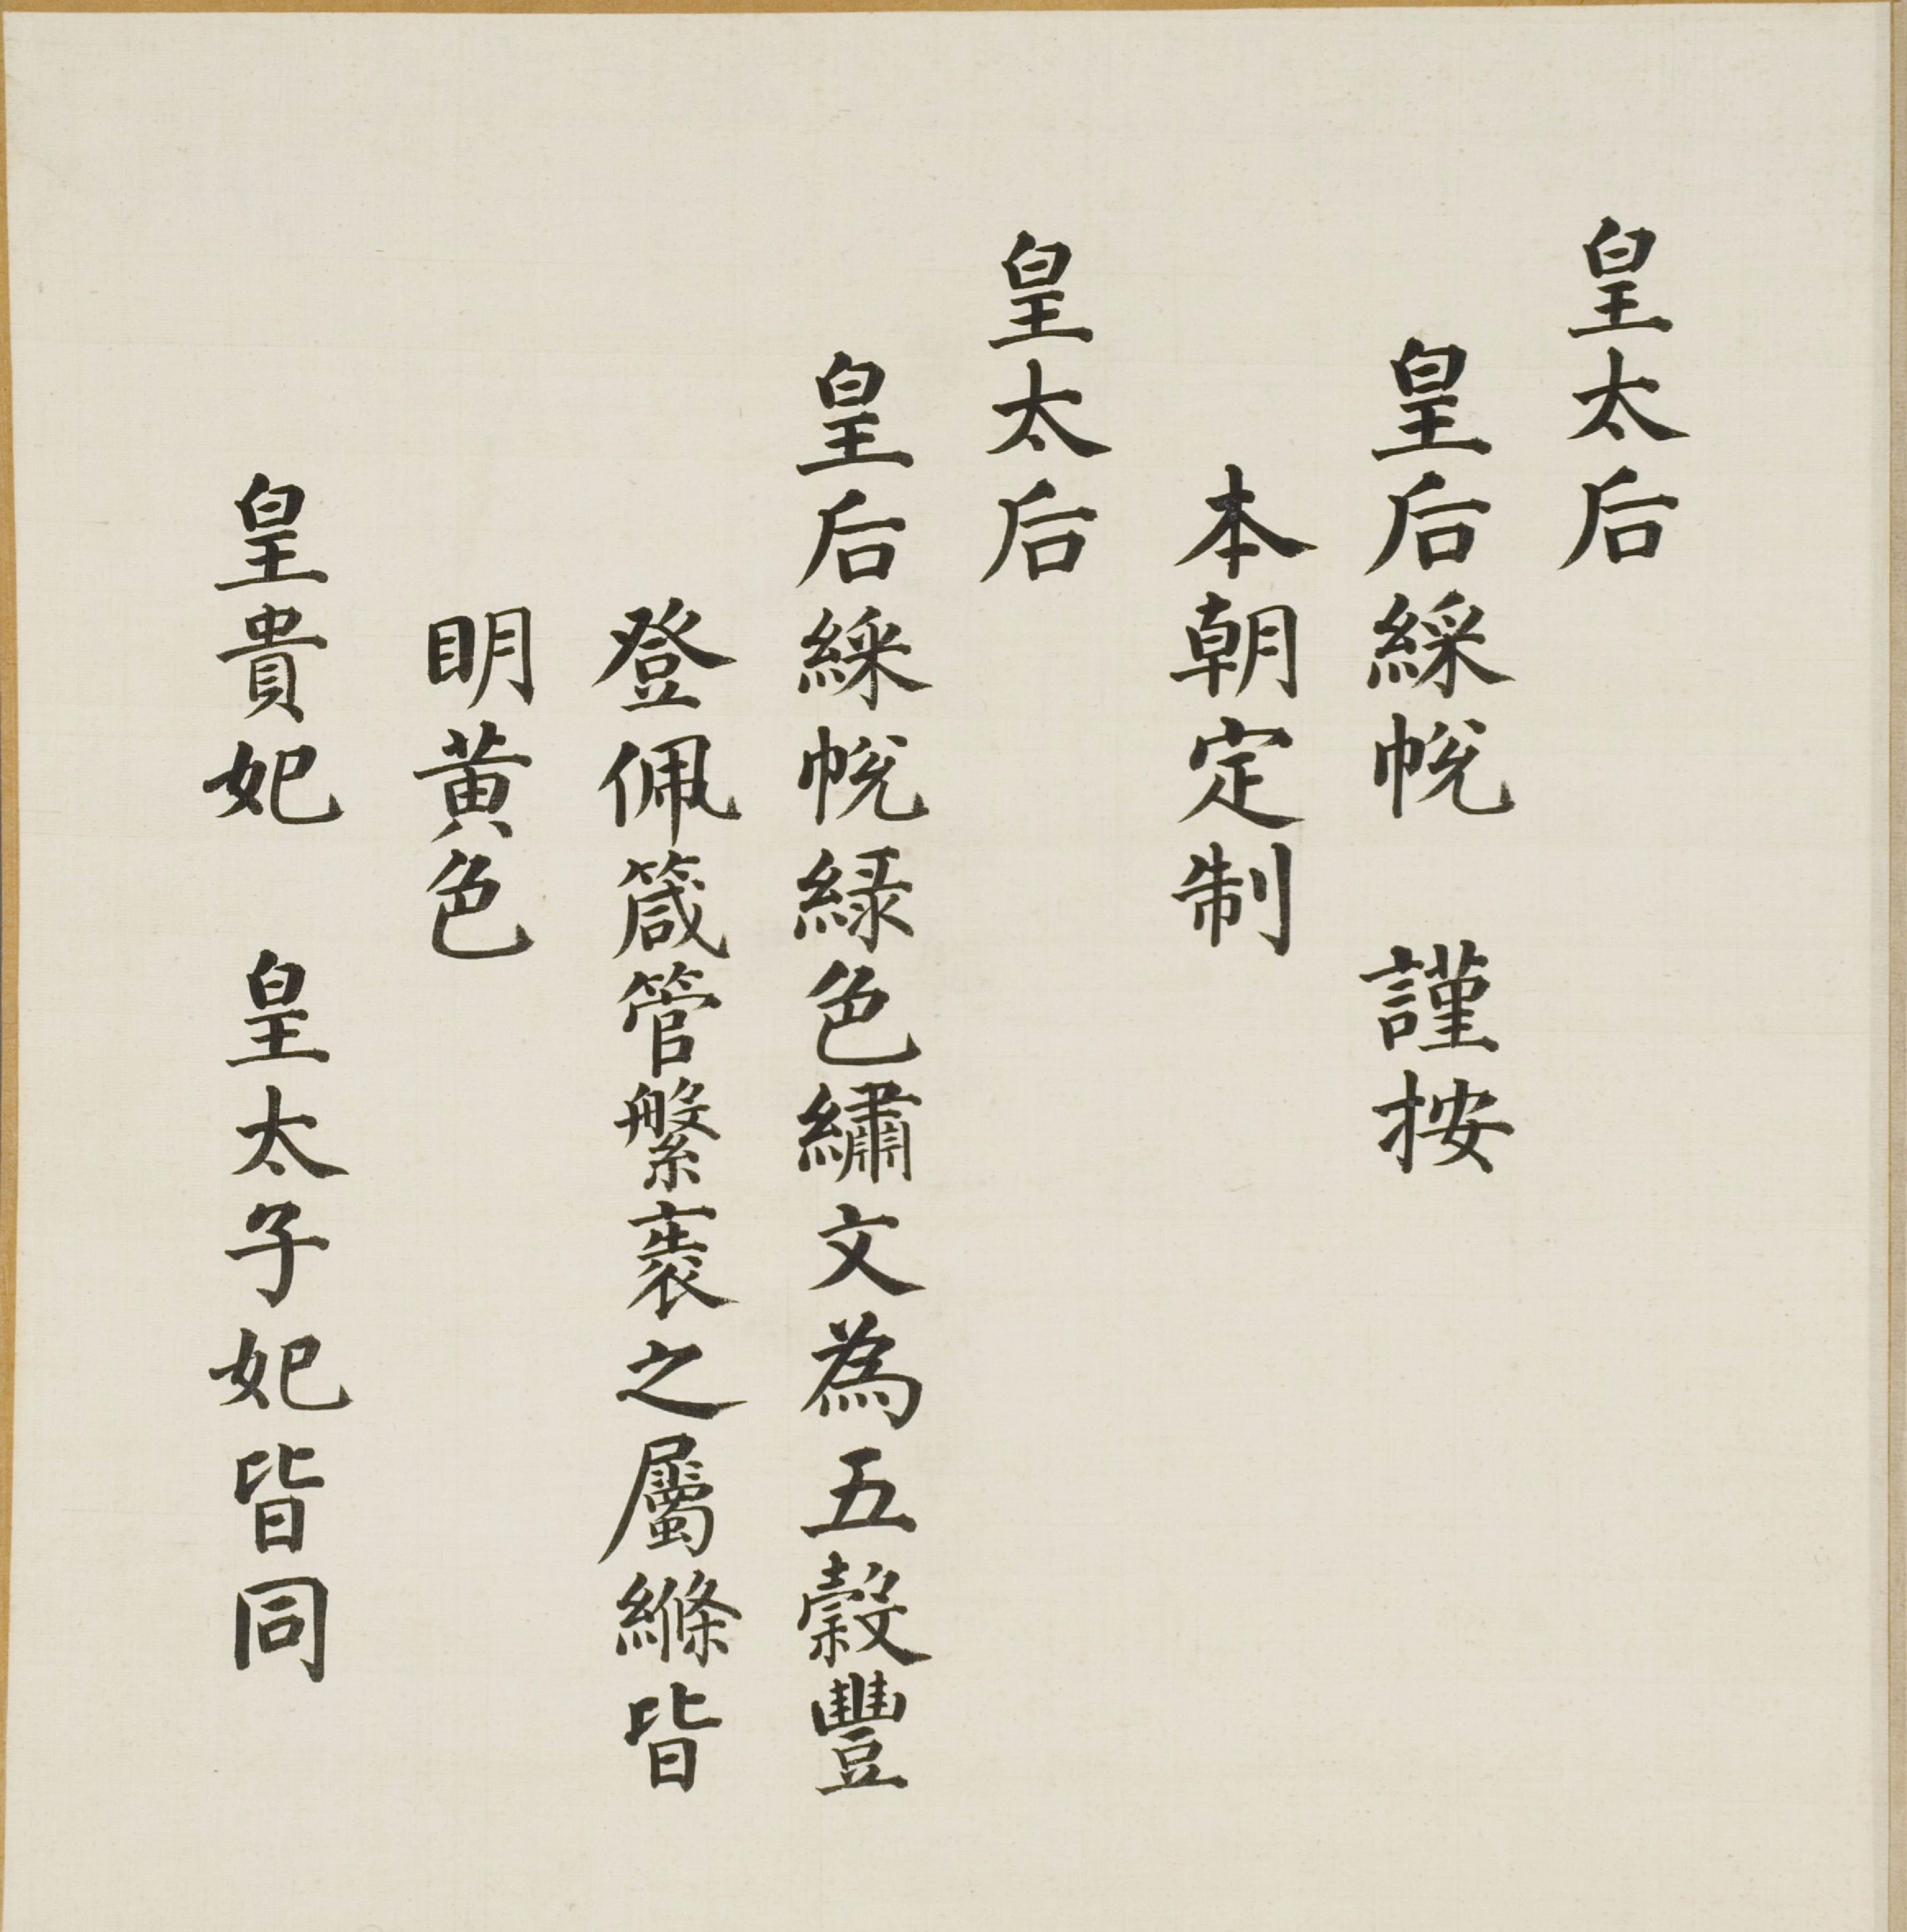 皇太后
皇后綵帨　謹按
本朝定制
皇太后
皇后綵帨綠色繡文為五穀豐
登佩箴管縏袠之屬縧皆
明黃色
皇貴妃　皇太子妃皆同